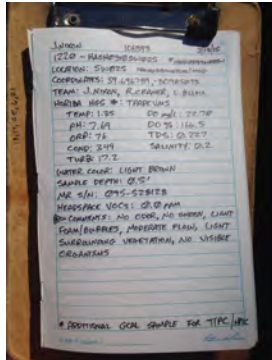 J. NIXON
1220 -
LOCATION: SW825
COORDINATES: 39.696789, -80.
TEAM: J. NIXON, R. CRAVER, L.
HORIBA MOS #:
TEMP: 1.85 DO mg/L: 22.70
PH: 7.69 DO %: 166.5
ORP: 76 TDS: 0.227
COND: 349 SALINITY: 0.2
TURB: 17.2
WATER COLOR: LIGHT BROWN
SAMPLE DEPTH: 0.5'
MR S/N: 095-528128
HEADSPACE VOCS: 0.0 PPM
COMMENTS: NO ODOR, NO SHEEN, LIGHT
FOAM/BUBBLES, MODERATE FLOW, LIGHT
SURROUNDING VEGETATION, NO VISIBLE
ORGANISMS
* ADDITIONAL GCAL SAMPLE FOR